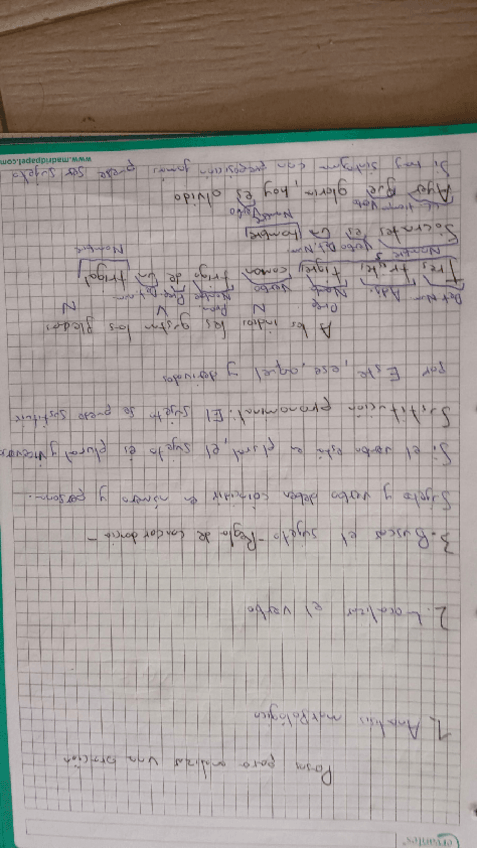 Cervantes
Pasos para analizar una oración
1. Análisis morfológico
2. Localizar el verbo
3. Buscar el sujeto - Regla de concordancia -
Sujeto y verbo deben coincidir en número y persona.
Si el verbo está en plural, el sujeto es plural y viceversa
Sustitución pronominal: El sujeto se puede sustituir
por Este, ese, aquel y derivados
A los indios les gustan las flechas
Pre N Pron V N
Det Num Adj. Nomb Verbo Nombre Pre Det Num
Tres tristes tigres comían trigo de un trigal
Nombre Verbo Det. Num Nombre
Sócrates es un hombre
Nombre Verbo
Ayer fue gloria, hoy es olvido
Si hay sintagma con preposición jamás puede ser sujeto
www.madridpapel.com